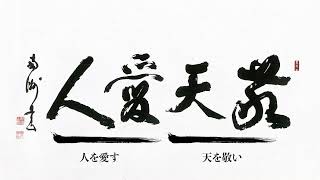 敬天愛人
南洲書
天を敬い
人を愛す